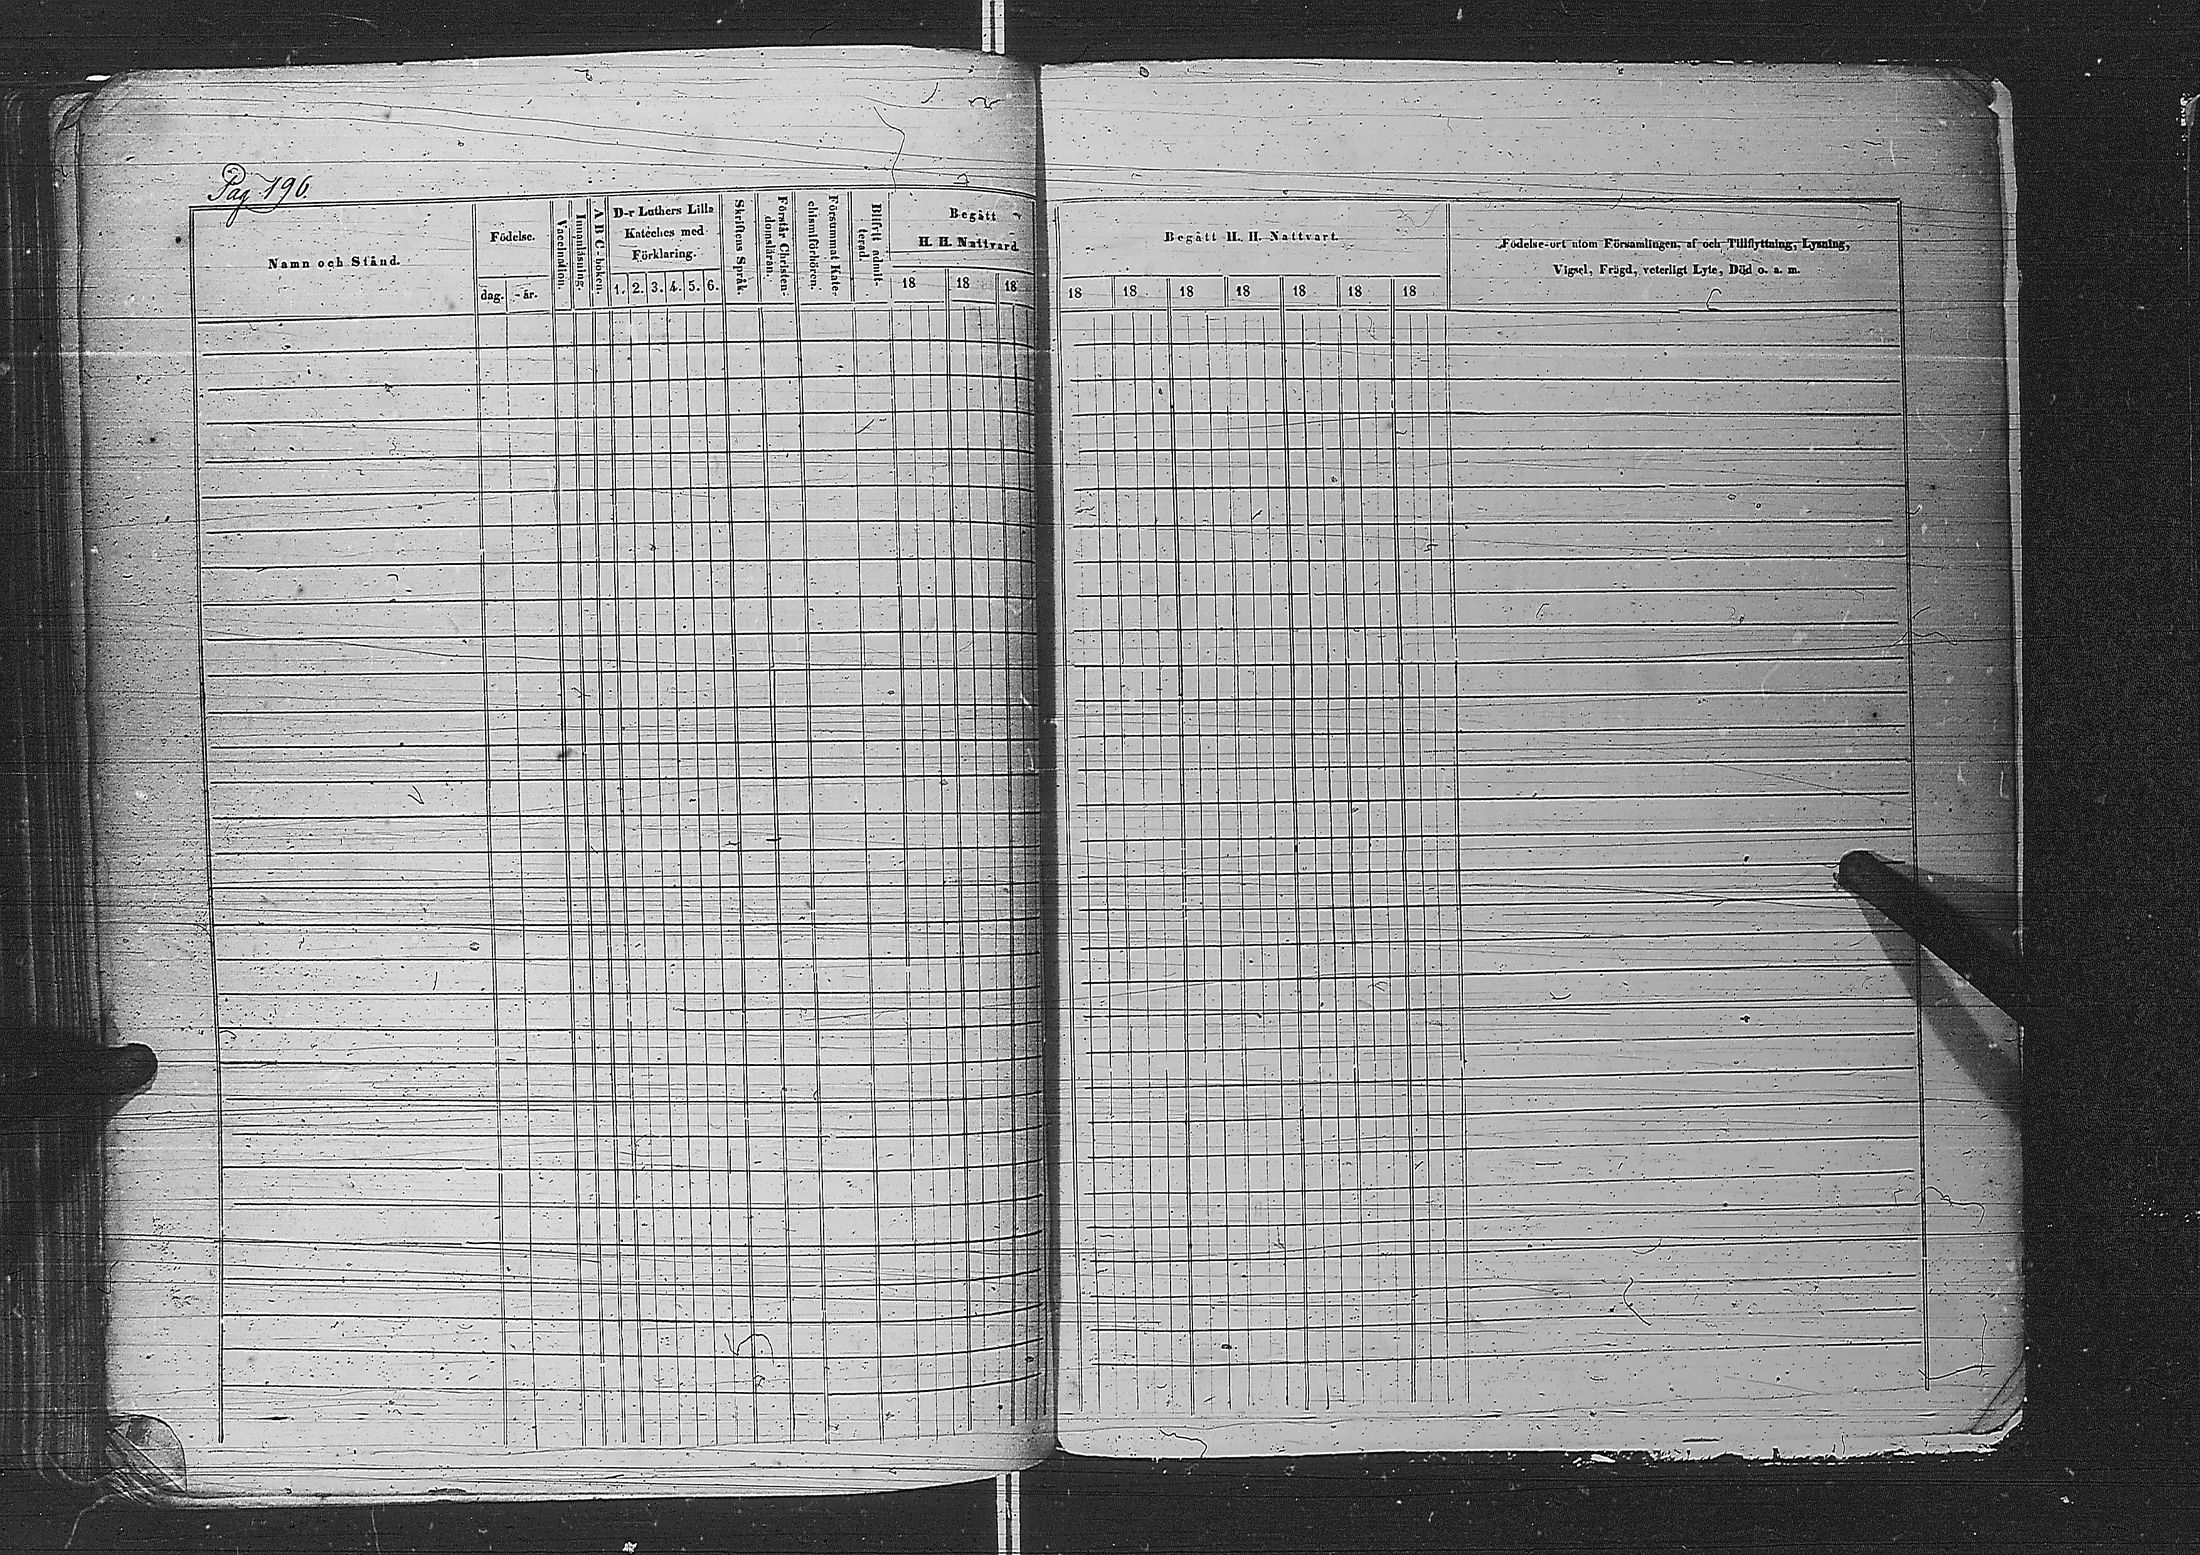 Pag 196.
Namn och Stånd.
Födelse.
dag.
-år.
Vaccination.
Innanläsning.
A B C-boken.
D-r Luthers Lilla
Kateches med
Förklaring.
1. 2. 3. 4. 5. 6.
Skriftens Språk.
Förstår Christen-
domsläran.
Försummat Kate-
chismiförhören.
Blifvit admit-
terad.
Begått
H. H. Nattvard.
18 18 18
Begått H. H. Nattvart.
18 18 18 18 18 18 18
Födelse-ort utom Församlingen, af och Tillflyttning, Lysning,
Vigsel, Frägd, veterligt Lyte, Död o. a. m.